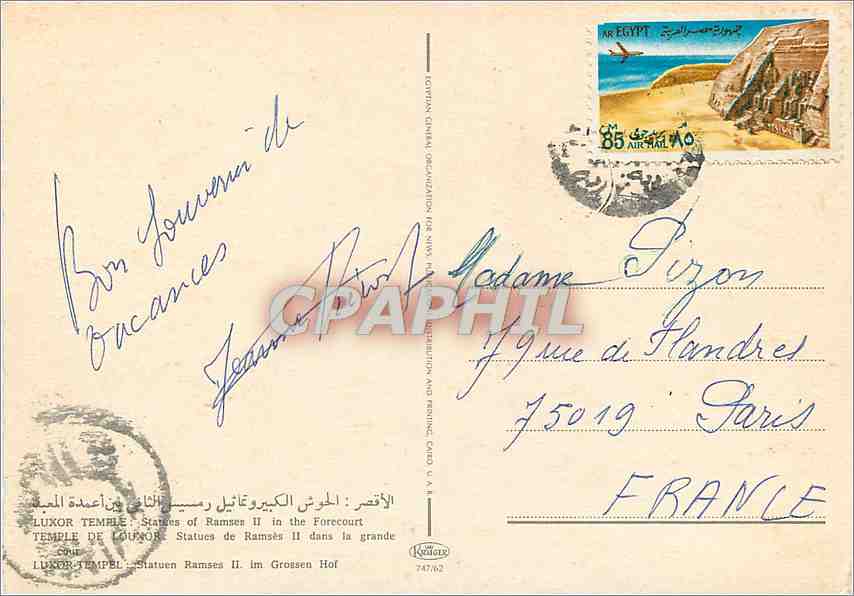 AR EGYPT جمهورية مصر العربية
85 M AIR MAIL ٨٥
Bon Souvenir de
vacances
Jeanne
Madame Pizon
79 rue de Flandres
75019 Paris
FRANCE
CPAPHIL
EGYPTIAN GENERAL ORGANIZATION FOR NEWS, DISTRIBUTION AND PRINTING, CAIRO U.A.R.
الأقصر : الحوش الكبير وتماثيل رمسيس الثاني بين أعمدة المعبد
LUXOR TEMPLE: Statues of Ramses II in the Forecourt
TEMPLE DE LOUXOR: Statues de Ramsès II dans la grande
cour
LUXOR-TEMPEL: Statuen Ramses II. im Grossen Hof
KRÜGER
747/62